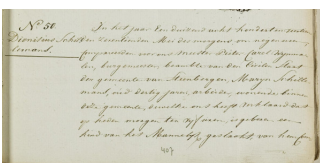 No 50
Dionisius Schel
lemans.
In het jaar een duizend acht honderd en
den Mei des morgens om negen uren,
compareerde voor ons meester Pieter Carel
burgemeester beambte van den Civiele Staat
der gemeente van Steenbergen, Marijn Schelle
mans, oud dertig jaren, arbeider, wonende binnen
deze gemeente, dewelke ons heeft verklaard dat
op heden morgen ten vijf uren, is geboren, een
kind van het Mannelijk geslacht, van hem
407